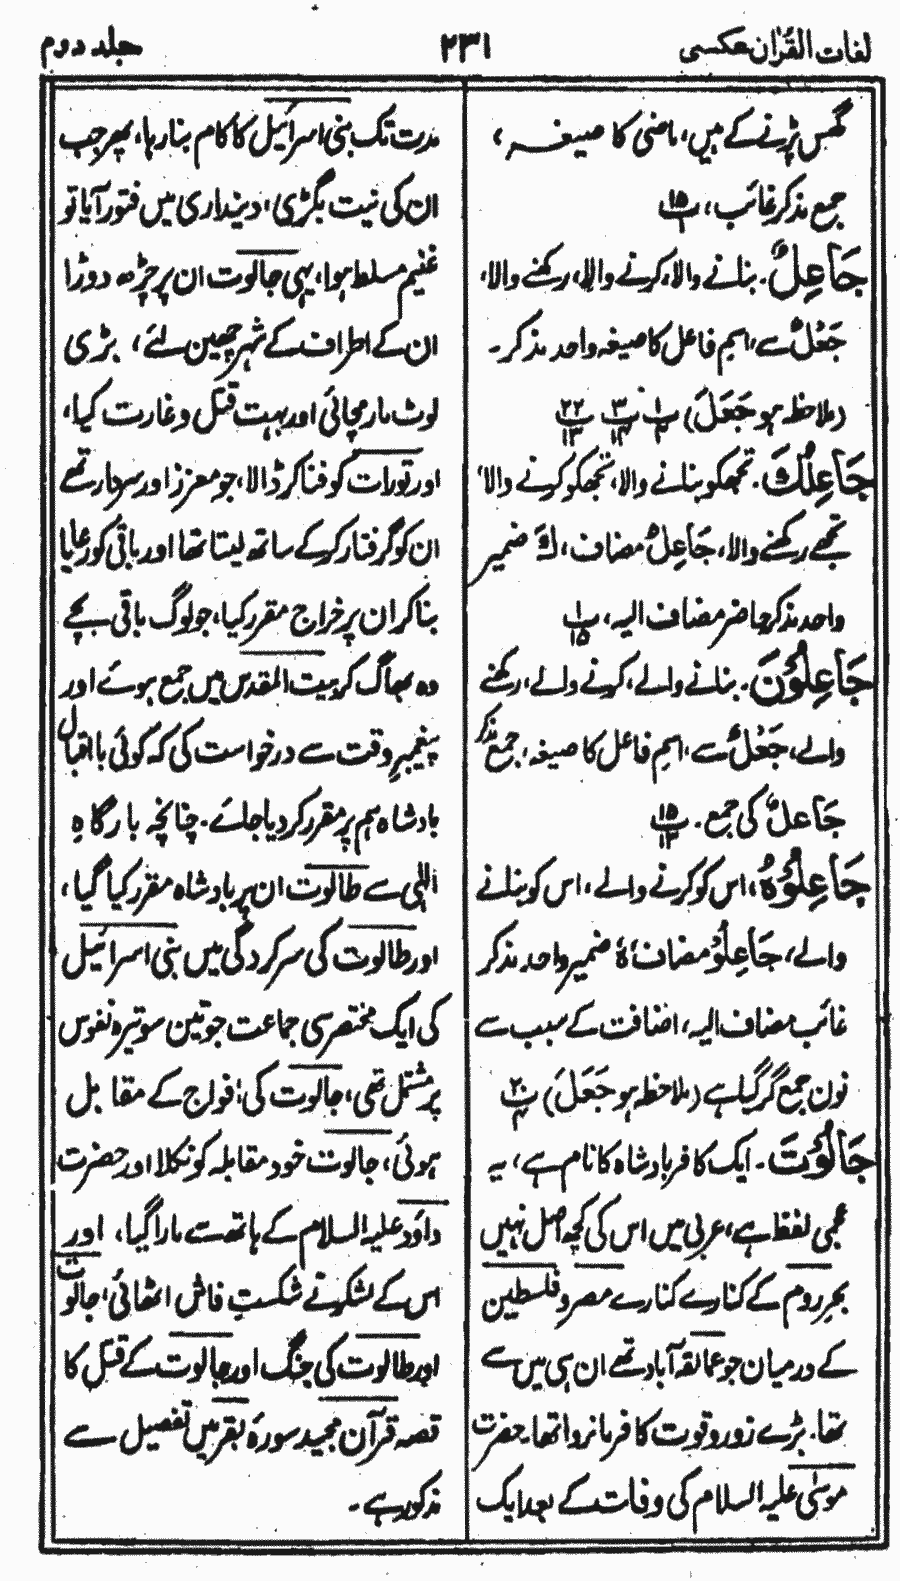 لغات القرآن عکسی
۲۳۱
جلد دوم
گھس پڑنے کے ہیں، ماضی کا صیغہ،
جمع مذکر غائب، پ ۱۵ ۱
جَاعِلٌ۔ بنانے والا، کرنے والا، رکھنے والا،
جَعْلٌ سے، اسمِ فاعل کا صیغہ واحد مذکر۔
(ملاحظہ ہو جَعَلَ) پ ۱ ۴ پ ۳ ۱۴ پ ۲۲ ۱۳
جَاعِلُكَ۔ تجھکو بنانے والا، تجھکو کرنے والا،
تجھے رکھنے والا، جَاعِلُ مضاف، كَ ضمیر
واحد مذکر حاضر مضاف الیہ، پ ۱ ۱۵
جَاعِلُوْنَ۔ بنانے والے، کرنے والے، رکھنے
والے، جَعْلٌ سے، اسمِ فاعل کا صیغہ، جمع مذکر
جَاعِلٌ کی جمع۔ پ ۱۵ ۱۳
جَاعِلُوْهُ، اس کو کرنے والے، اس کو بنانے
والے، جَاعِلُوْ مضاف، هُ ضمیر واحد مذکر
غائب مضاف الیہ، اضافت کے سبب سے
نون جمع گر گیا ہے (ملاحظہ ہو جَعَلَ) پ ۲۰ ۴
جَالُوْتَ۔ ایک کافر بادشاہ کا نام ہے، یہ
عجمی لفظ ہے، عربی میں اس کی کچھ اصل نہیں
بحرِ روم کے کنارے کنارے مصر و فلسطین
کے درمیان جو عمالقہ آباد تھے ان ہی میں سے
تھا۔ بڑے زور و قوت کا فرمانروا تھا۔ حضرت
موسٰی علیہ السلام کی وفات کے بعد ایک
مدت تک بنی اسرائیل کا کام بنا رہا، پھر جب
ان کی نیت بگڑی، دینداری میں فتور آیا تو
غنیم مسلط ہوا، یہی جالوت ان پر چڑھ دوڑا
ان کے اطراف کے شہر چھین لئے، بڑی
لوٹ مار مچائی اور بہت قتل و غارت کیا،
اور تورات کو فنا کر ڈالا، جو معزز اور سردار تھے
ان کو گرفتار کر کے ساتھ لیتا تھا اور باقی کو رعایا
بنا کر ان پر خراج مقرر کیا، جو لوگ باقی بچے
وہ بھاگ کر بیت المقدس میں جمع ہوئے اور
پیغمبرِ وقت سے درخواست کی کہ کوئی بااقبال
بادشاہ ہم پر مقرر کر دیا جائے۔ چنانچہ بارگاہِ
الٰہی سے طالوت ان پر بادشاہ مقرر کیا گیا،
اور طالوت کی سرکردگی میں بنی اسرائیل
کی ایک مختصر سی جماعت جو تین سو تیرہ نفوس
پر مشتمل تھی، جالوت کی افواج کے مقابل
ہوئی، جالوت خود مقابلہ کو نکلا اور حضرت
داؤد علیہ السلام کے ہاتھ سے مارا گیا، اور
اس کے لشکر نے شکستِ فاش اٹھائی، جالوت
اور طالوت کی جنگ اور جالوت کے قتل کا
قصہ قرآن مجید سورۂ بقر میں تفصیل سے
مذکور ہے۔